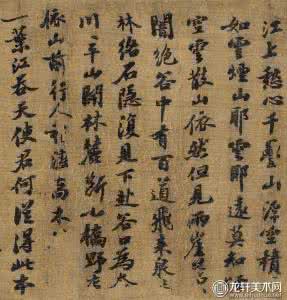 江上愁心千疊山浮空積
如雲煙山耶雲耶遠莫知煙
空雲散山依然但見兩崖
闇絶谷中有百道飛來泉
林絡石隱復見下赴谷口為
川平山開林麓斷小橋野店
依山前行人稍度喬木
一葉江吞天使君何從得此本
龙轩美术网